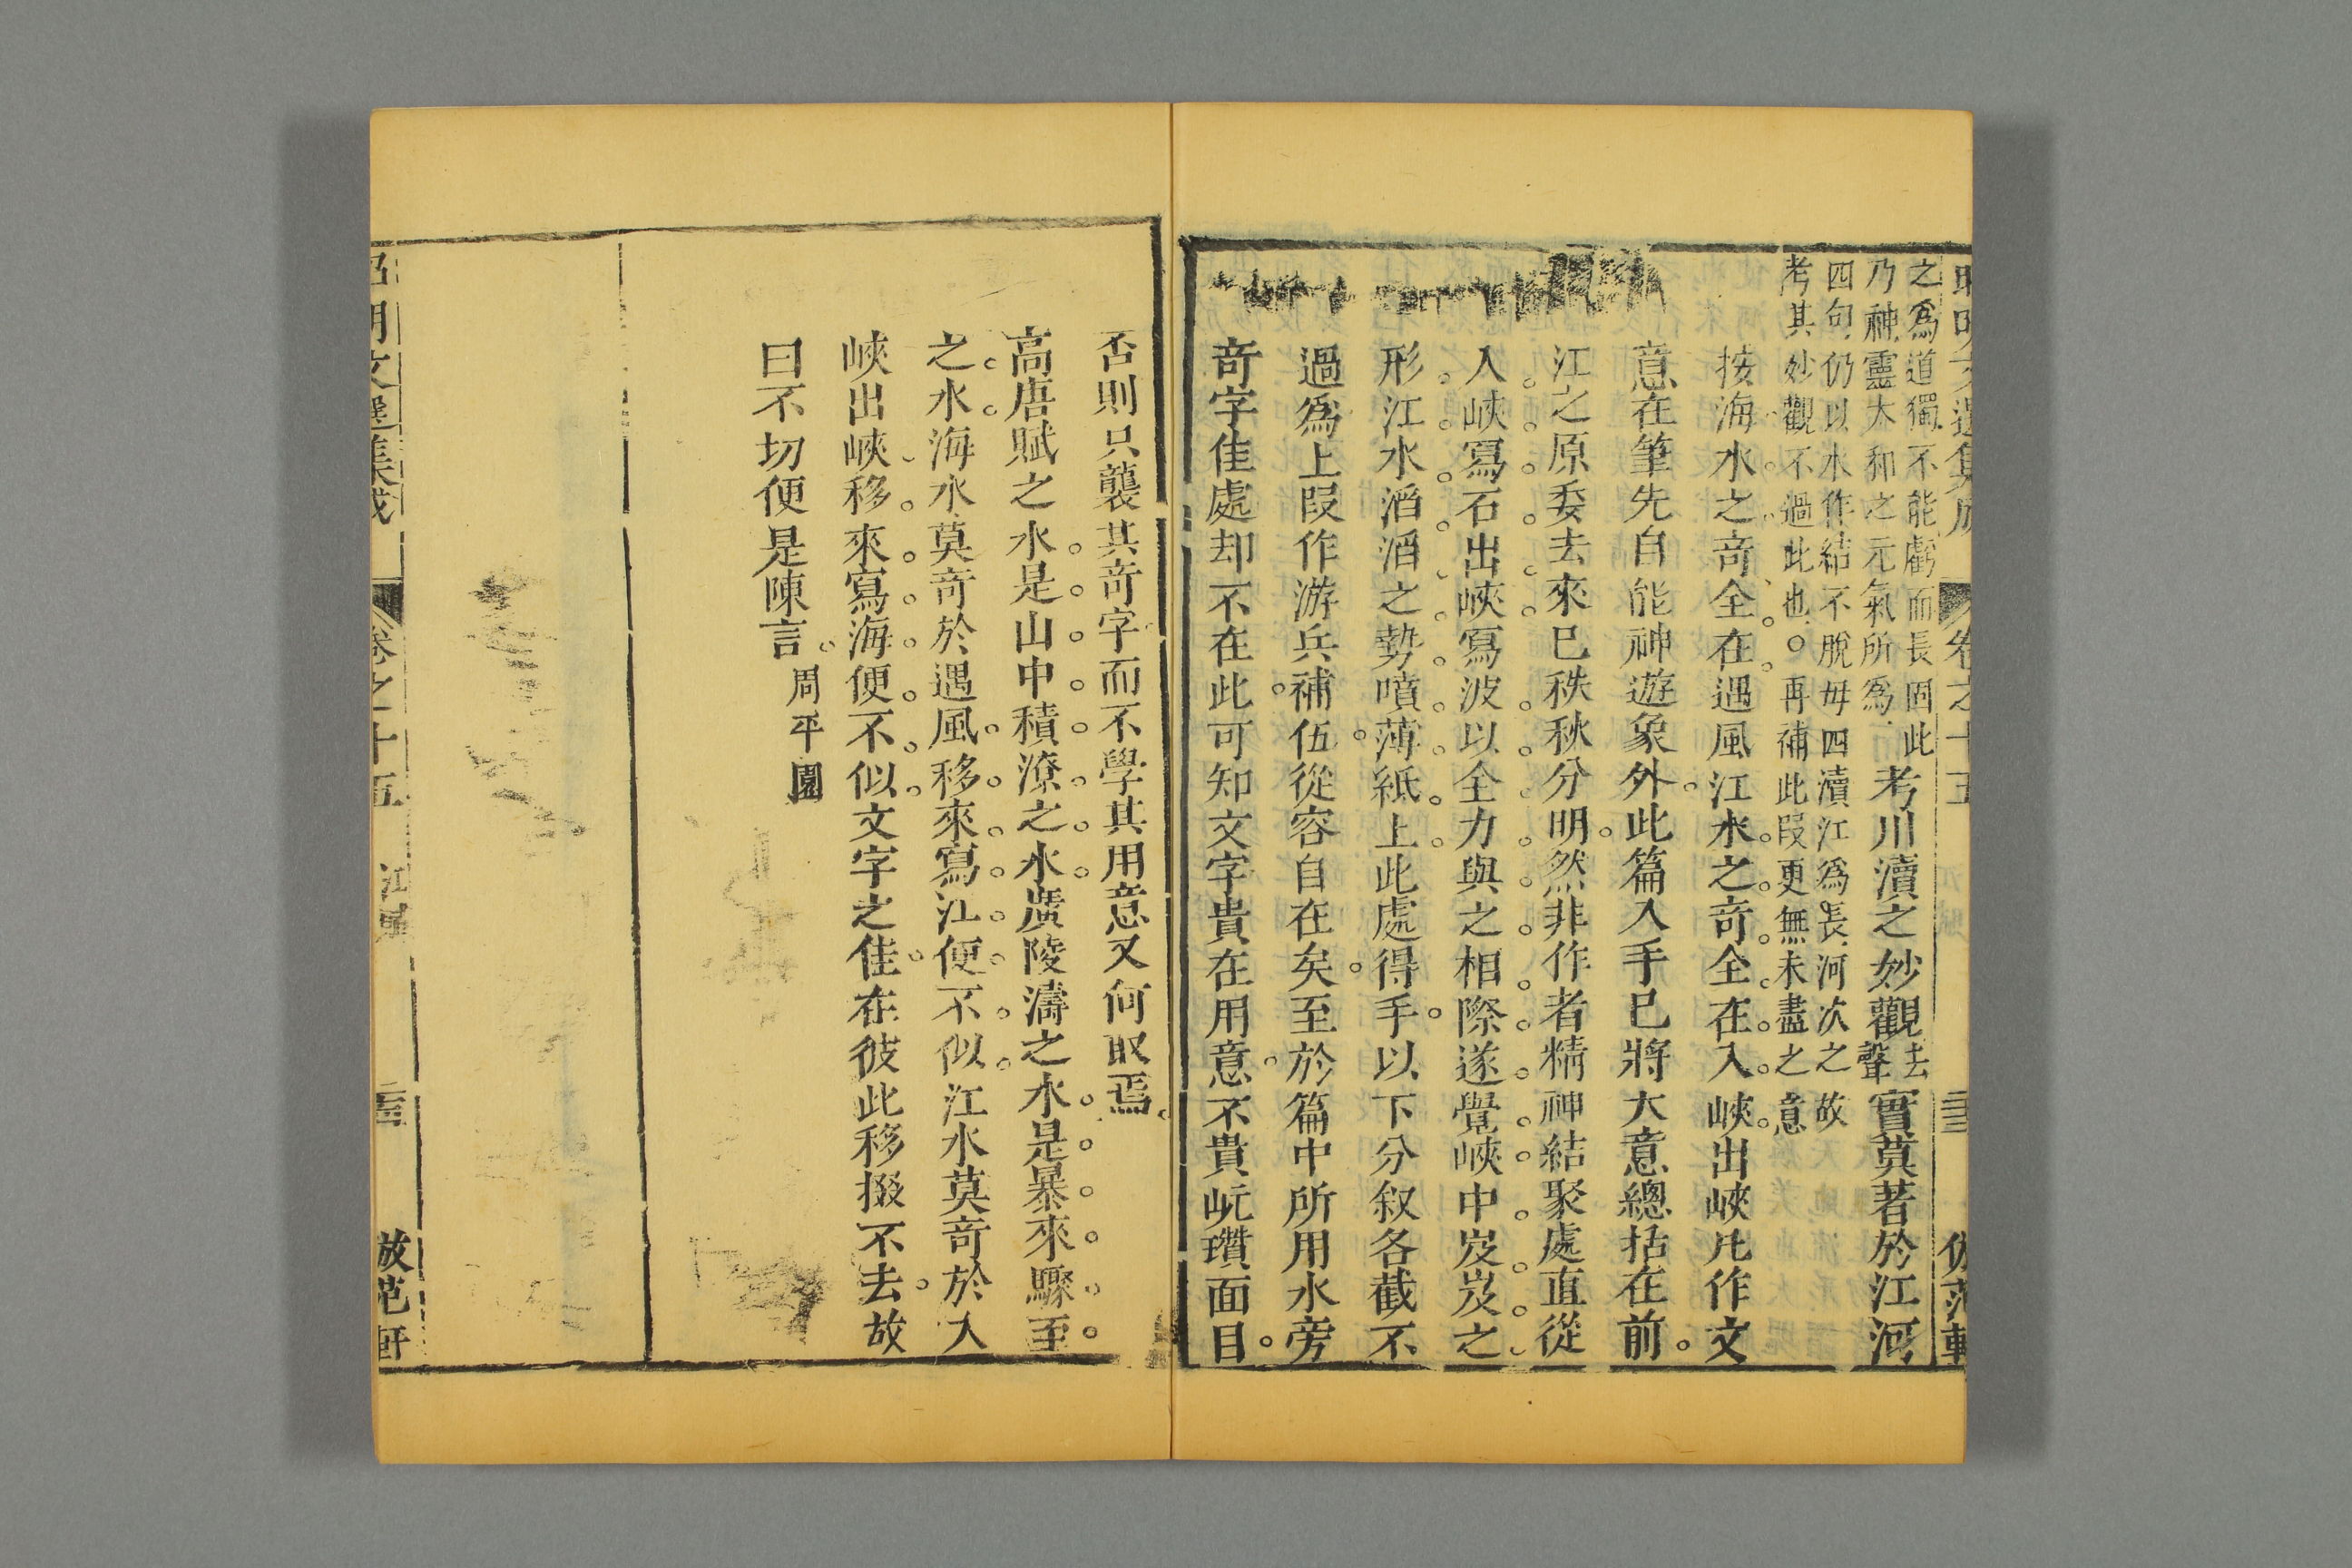 昭明文選集成 卷之十五 倣范軒
之爲道獨不能虧而長固此
乃神靈太和之元氣所爲
考川瀆之妙觀去聲實莫著於江河
四句仍以水作結不脫毋四瀆江爲長河次之故
考其妙觀不過此也○再補此叚更無未盡之意
按海水之竒全在遇風江水之竒全在入峽出峽凡作文
意在筆先自能神遊象外此篇入手已將大意總括在前
江之原委去來已秩秩分明然非作者精神結聚處直從
入峽寫石出峽寫波以全力與之相際遂覺峽中岌岌之
形江水滔滔之勢噴薄紙上此處得手以下分叙各截不
過爲上叚作游兵補伍從容自在矣至於篇中所用水旁
竒字佳處却不在此可知文字貴在用意不貴岏瓚面目
否則只襲其竒字而不學其用意又何取焉
高唐賦之水是山中積潦之水廣陵濤之水是暴來驟至
之水海水莫竒於遇風移來寫江便不似江水莫竒於入
峽出峽移來寫海便不似文字之佳在彼此移掇不去故
曰不切便是陳言周平園
昭明文選集成 卷之十五 江賦 倣范軒